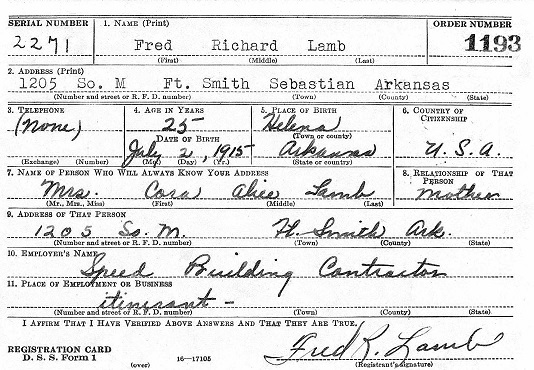 SERIAL NUMBER 1. NAME (Print) ORDER NUMBER
2271 Fred Richard Lamb 1193
(First) (Middle) (Last)
2. ADDRESS (Print)
1205 So. M Ft. Smith Sebastian Arkansas
(Number and street or R. F. D. number) (Town) (County) (State)
3. TELEPHONE 4. AGE IN YEARS 5. PLACE OF BIRTH 6. COUNTRY OF CITIZENSHIP
(None) 25 Helena
(Town or county)
DATE OF BIRTH
July 2, 1915 Arkansas U.S.A.
(Exchange) (Number) (Mo.) (Day) (Yr.) (State or country)
7. NAME OF PERSON WHO WILL ALWAYS KNOW YOUR ADDRESS 8. RELATIONSHIP OF THAT PERSON
Mrs. Cora Alice Lamb Mother
(Mr., Mrs., Miss) (First) (Middle) (Last)
9. ADDRESS OF THAT PERSON
1205 So. M. Ft. Smith Ark.
(Number and street or R. F. D. number) (Town) (County) (State)
10. EMPLOYER'S NAME
Speed Building Contractor
11. PLACE OF EMPLOYMENT OR BUSINESS
itinerant -
(Number and street or R. F. D. number) (Town) (County) (State)
I AFFIRM THAT I HAVE VERIFIED ABOVE ANSWERS AND THAT THEY ARE TRUE.
Fred R. Lamb
REGISTRATION CARD
D. S. S. Form 1 (over) 16—17105 (Registrant's signature)